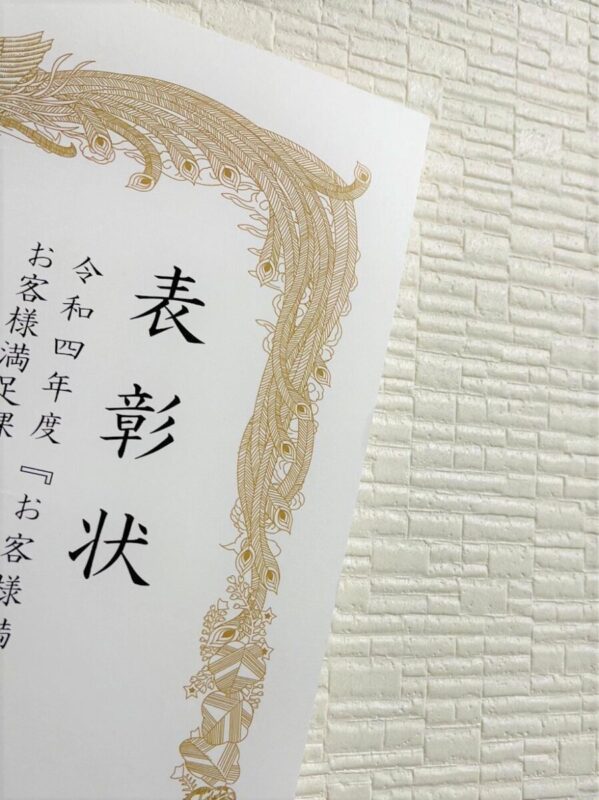 表彰状
令和四年度『お客様満
お客様満足課